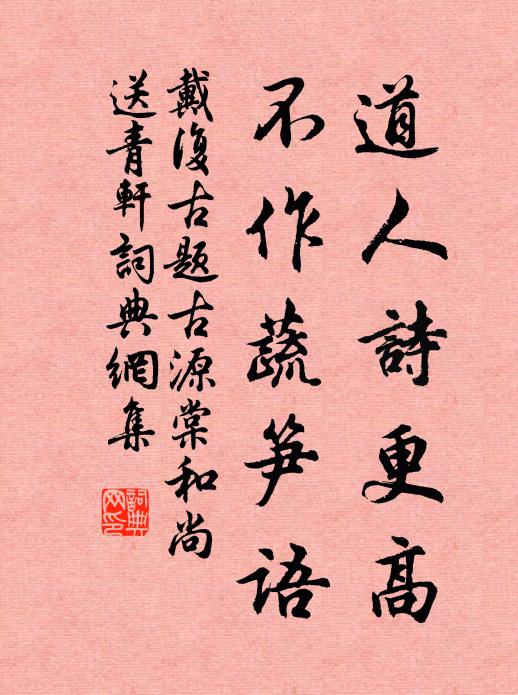 道人詩更高
不作蔬笋語
戴復古題古源棠和尚
送青軒詞典網集
詞典網印